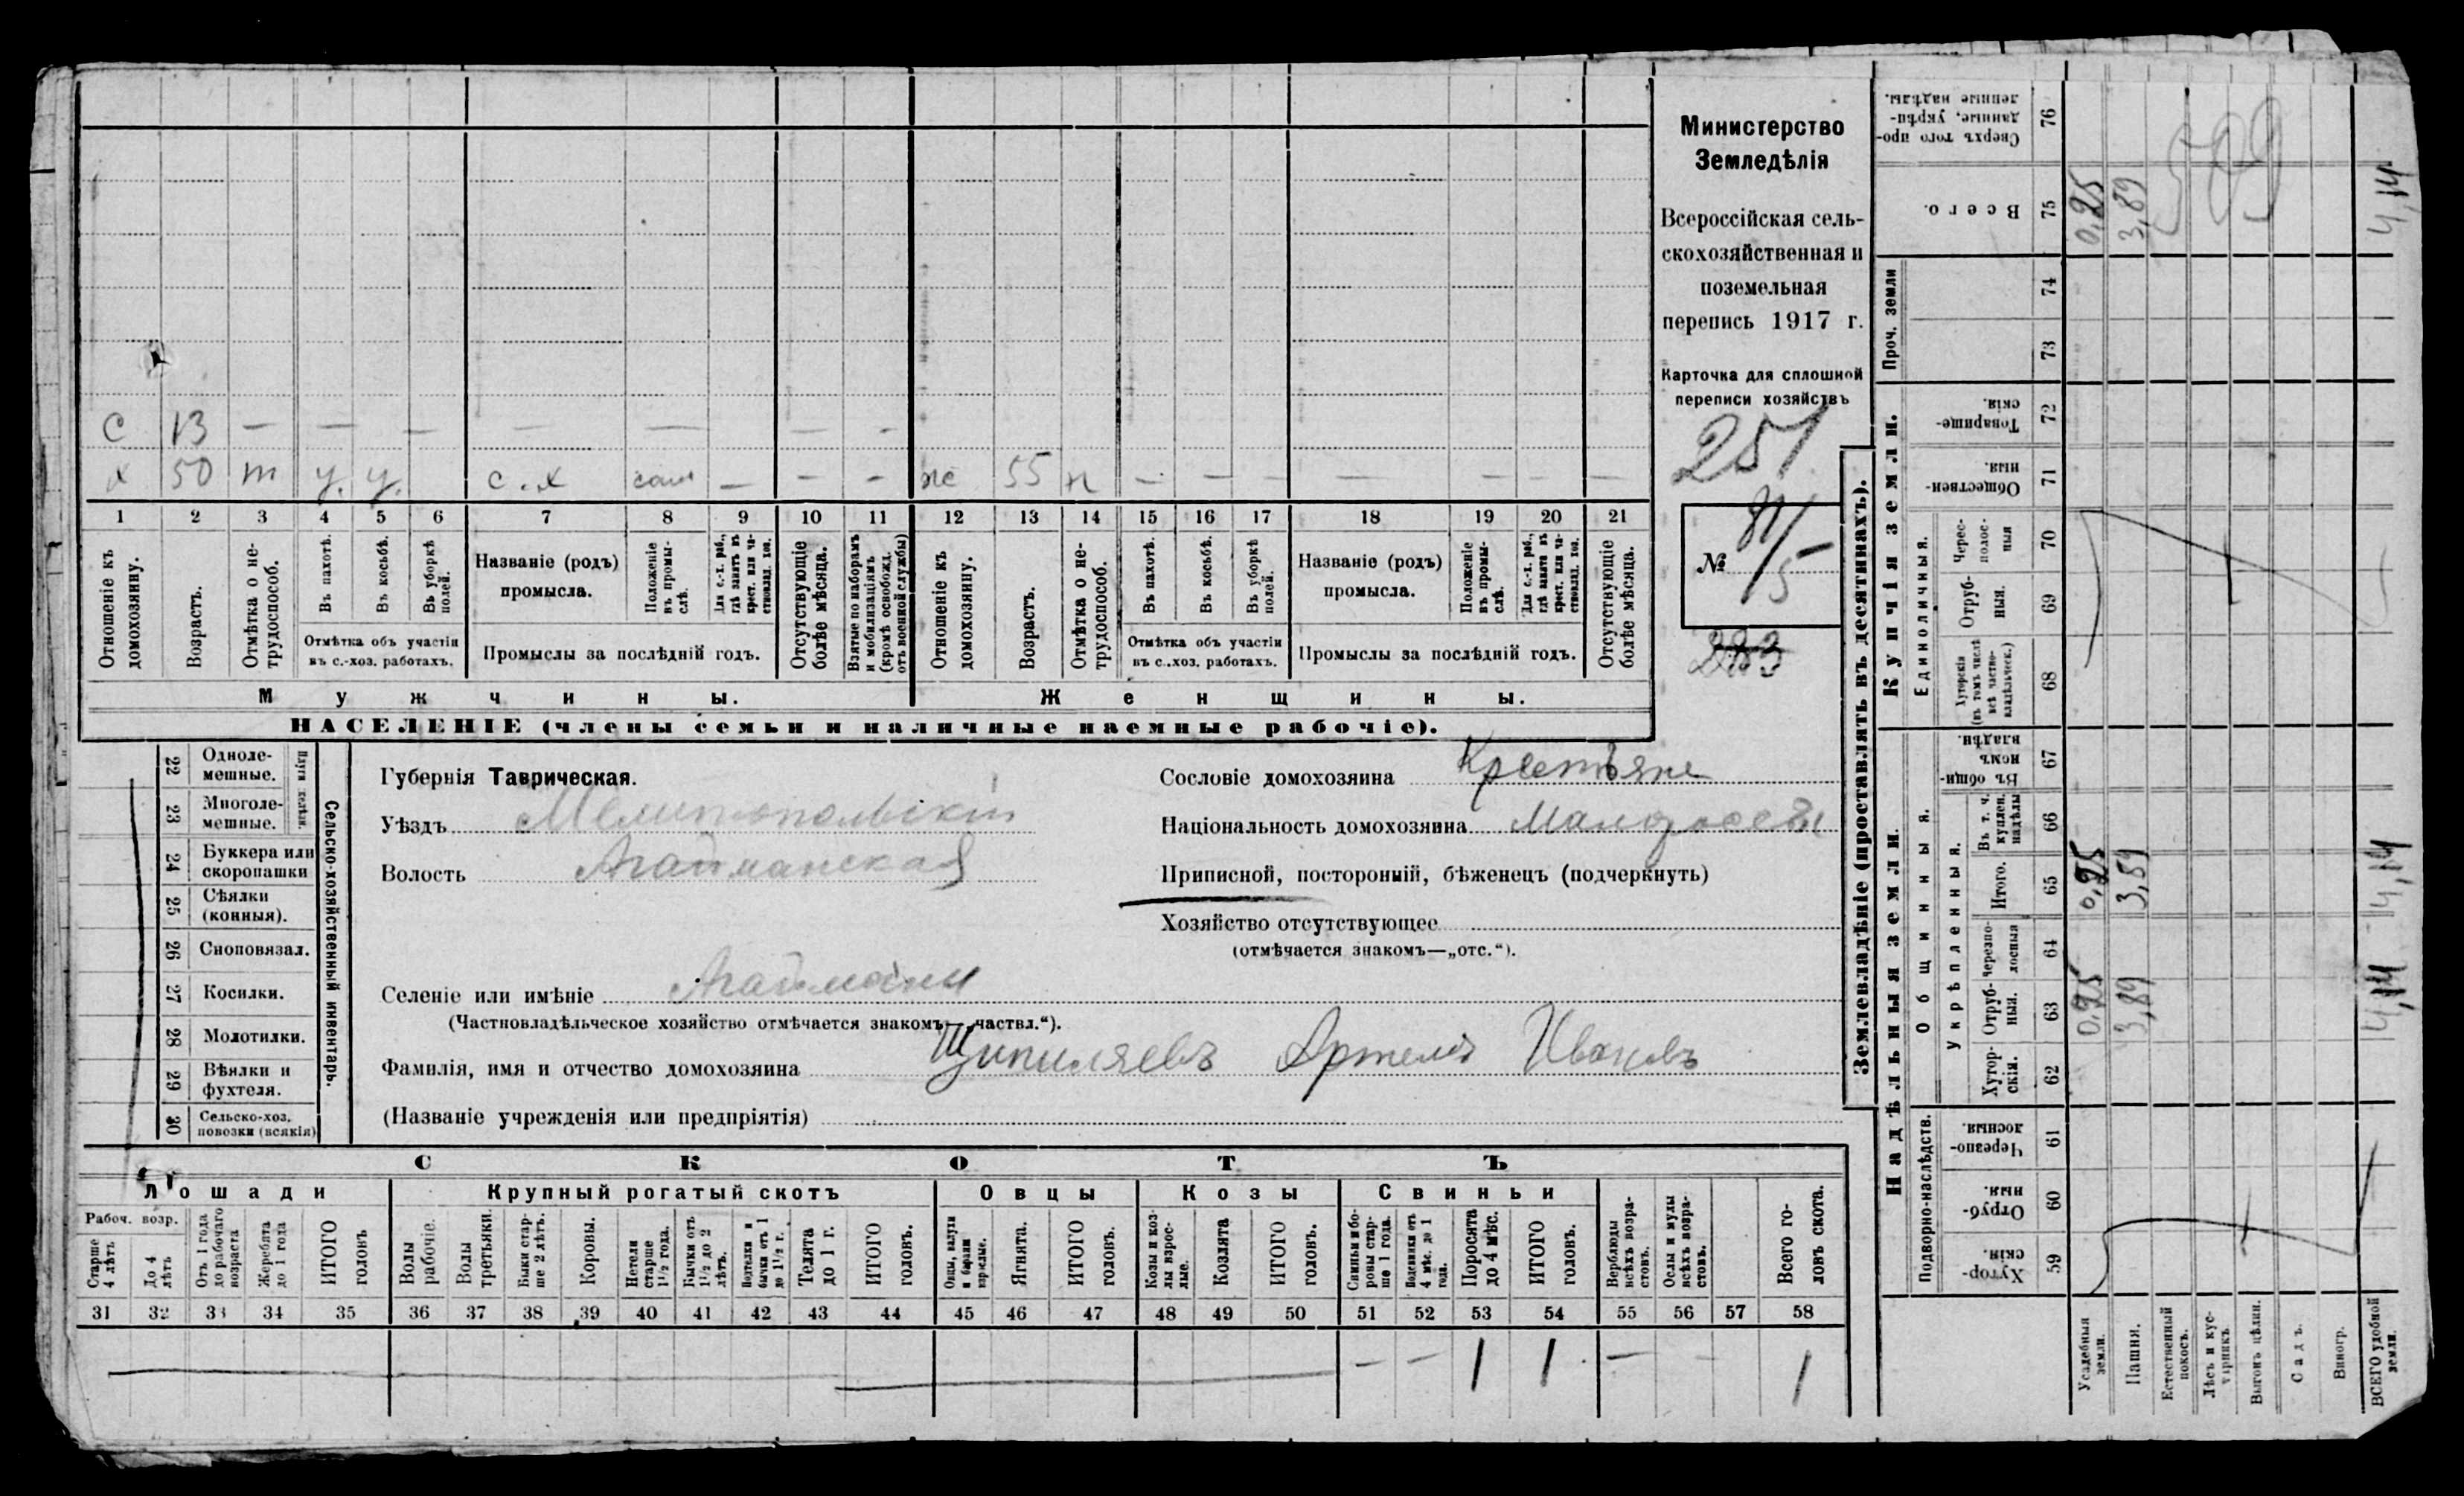 Министерство
Земледѣлія
Всероссійская сель-
скохозяйственная и
поземельная
перепись 1917 г.
Карточка для сплошной
переписи хозяйствъ
251
№ 81/5
283
с 13 — — — — — — — — -
х 50 т у. у. с.х сам — — - же 55 п — — — — — — —
1 2 3 4 5 6 7 8 9 10 11 12 13 14 15 16 17 18 19 20 21
Отношеніе къ домохозяину.
Возрастъ.
Отмѣтка о не-трудоспособ.
Въ пахотѣ.
Въ косьбѣ.
Въ уборкѣ полей.
Отмѣтка объ участіи
въ с.-хоз. работахъ.
Названіе (родъ)
промысла.
Положеніе въ промы-слѣ.
Для с.-х. раб., гдѣ занятъ въ крест. или ча-стновлад. хоз.
Промыслы за послѣдній годъ.
Отсутствующіе болѣе мѣсяца.
Взятые по наборамъ и мобилизаціямъ (кромѣ освобожд. отъ военной службы)
Отношеніе къ домохозяину.
Возрастъ.
Отмѣтка о не-трудоспособ.
Въ пахотѣ.
Въ косьбѣ.
Въ уборкѣ полей.
Отмѣтка объ участіи
въ с.-хоз. работахъ.
Названіе (родъ)
промысла.
Положеніе въ промы-слѣ.
Для с.-х. раб., гдѣ занятъ въ крест. или ча-стновлад. хоз.
Промыслы за послѣдній годъ.
Отсутствующіе болѣе мѣсяца.
Мужчины. Женщины.
НАСЕЛЕНІЕ (члены семьи и наличные наемные рабочіе).
Сельско-хозяйственный инвентарь.
22 Одноле-мешные.
23 Многоле-мешные.
24 Буккера или скоропашки
25 Сѣялки (конныя).
26 Сноповязал.
27 Косилки.
28 Молотилки.
29 Вѣялки и фухтеля.
30 Сельско-хоз. повозки (всякія)
Губернія Таврическая.
Уѣздъ Мелитопольскій
Волость Агайманская
Селеніе или имѣніе Агайманы
(Частновладѣльческое хозяйство отмѣчается знакомъ—„частвл.“).
Фамилія, имя и отчество домохозяина Щипиляевъ Артемъ Ивановъ
(Названіе учрежденія или предпріятія)
Сословіе домохозяина Крестьяне
Національность домохозяина Малороссъ
Приписной, посторонній, бѣженецъ (подчеркнуть)
Хозяйство отсутствующее
(отмѣчается знакомъ—„отс.“).
СКОТЪ
Лошади Крупный рогатый скотъ Овцы Козы Свиньи
Рабоч. возр.
Старше 4 лѣтъ
До 4 лѣтъ
Отъ 1 года до рабочаго возраста
Жеребята до 1 года
ИТОГО головъ
Волы рабочіе.
Волы третьяки.
Быки стар-ше 2 лѣтъ.
Коровы.
Нетели старше 1½ года.
Бычки отъ 1½ до 2 лѣтъ.
Подтелки и бычки отъ 1 до 1½ г.
Телята до 1 г.
ИТОГО головъ.
Овцы, валухи и бараны взрослые.
Ягнята.
ИТОГО головъ.
Козы и коз-лы взрос-лые.
Козлята
ИТОГО головъ.
Свиньи и бо-ровы стар-ше 1 года.
Подсвинки отъ 4 мѣс. до 1 года.
Поросята до 4 мѣс.
ИТОГО головъ.
Верблюды всѣхъ возра-стовъ.
Ослы и мулы всѣхъ возра-стовъ.
Всего го-ловъ скота.
31 32 33 34 35 36 37 38 39 40 41 42 43 44 45 46 47 48 49 50 51 52 53 54 55 56 57 58
— — 1 1 — - 1
Землевладѣніе (проставлять въ десятинахъ).
Надѣльныя земли.
Купчія земли.
Проч. земли
Подворно-наслѣдств.
Общинныя.
Укрѣпленныя.
Единоличныя.
59 Хутор-скія.
60 Отруб-ныя.
61 Черезпо-лосныя.
62 Хутор-скія.
63 Отруб-ныя.
64 Черезпо-лосныя
65 Итого.
66 Въ т. ч. куплен. надѣлы
67 Въ общи-номъ владѣн.
68 Хуторскія (въ томъ числѣ всѣ частно-владѣльческ.)
69 Отруб-ныя.
70 Черес-полос-ныя
71 Обществен-ныя.
72 Товарище-скія.
73
74
75 Всего.
76 Сверхъ того про-данные, укрѣп-ленные надѣлы.
Усадебныя земли. 0,25 0,25 0,25
Пашня. 3,89 3,89 3,89
Естественный покосъ.
Лѣсъ и кус-тарникъ.
Выгонъ цѣлин.
Садъ.
Виногр.
ВСЕГО удобной земли. 4,14 4,14 4,14
589